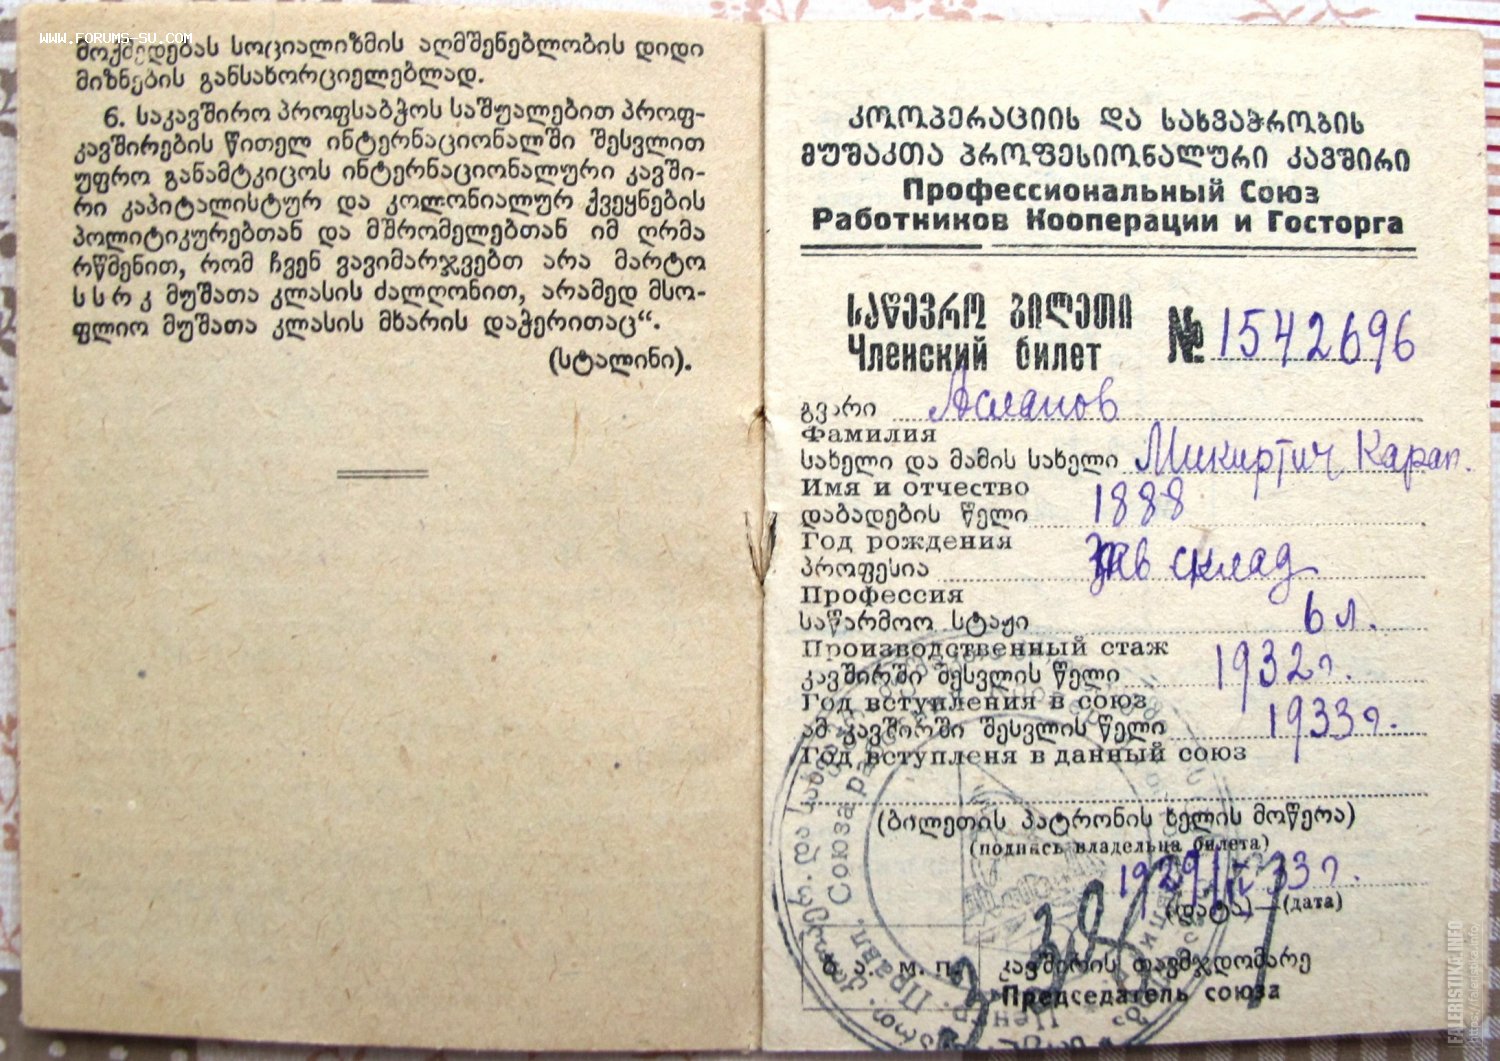 WWW.FORUMS-SU.COM
მოქმედებას სოციალიზმის აღმშენებლობის დიდი
მიზნების განსახორციელებლად.
6. საკავშირო პროფსაბჭოს საშუალებით პროფ-
კავშირების წითელ ინტერნაციონალში შესვლით
უფრო განამტკიცოს ინტერნაციონალური კავში-
რი კაპიტალისტურ და კოლონიალურ ქვეყნების
პოლიტიკურებთან და მშრომელებთან იმ ღრმა
რწმენით, რომ ჩვენ ვავიმარჯვებთ არა მარტო
სსრკ მუშათა კლასის ძალღონით, არამედ მსო-
ფლიო მუშათა კლასის მხარის დაჭერითაც“.
(სტალინი).
კოოპერაციის და სახვაჭრობის
მუშაკთა პროფესიონალური კავშირი
Профессиональный Союз
Работников Кооперации и Госторга
საწევრო ბილეთი
Членский билет
№ 1542696
გვარი Асланов
Фамилия
სახელი და მამის სახელი Микиртич Карап.
Имя и отчество
დაბადების წელი 1888
Год рождения
პროფესია Зав склад
Профессия
საწარმოო სტაჟი 6 л.
Производственный стаж
კავშირში შესვლის წელი 1932 г.
Год вступления в союз
ამ კავშირში შესვლის წელი 1933 г.
Год вступленя в данный союз
(ბილეთის პატრონის ხელის მოწერა)
(подпись владельца билета)
(დატა)—(дата)
ბ. ა. м. п. კავშირის თავმჯდომარე
Председатель союза
FALERISTIKA.INFO
https://faleristika.info/